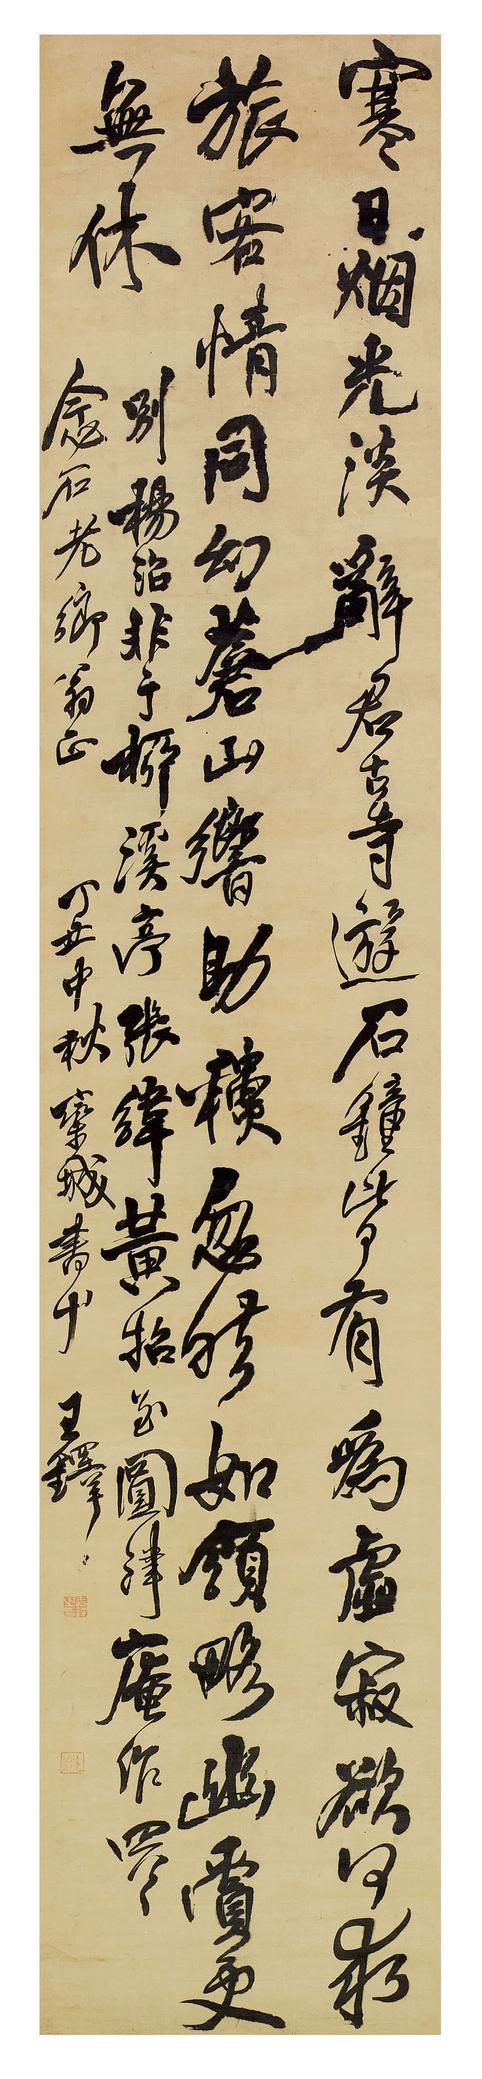 寒日烟光淡辭君古寺遊石鐘皆有爲虛寂欲何求
旅客情同幻蒼山響助忽然如領略幽賞更
無休
別楊治非于栁溪亭張緯黃招至圓津庵作
念石老鄉翁正 丁丑中秋欒城書 王鐸